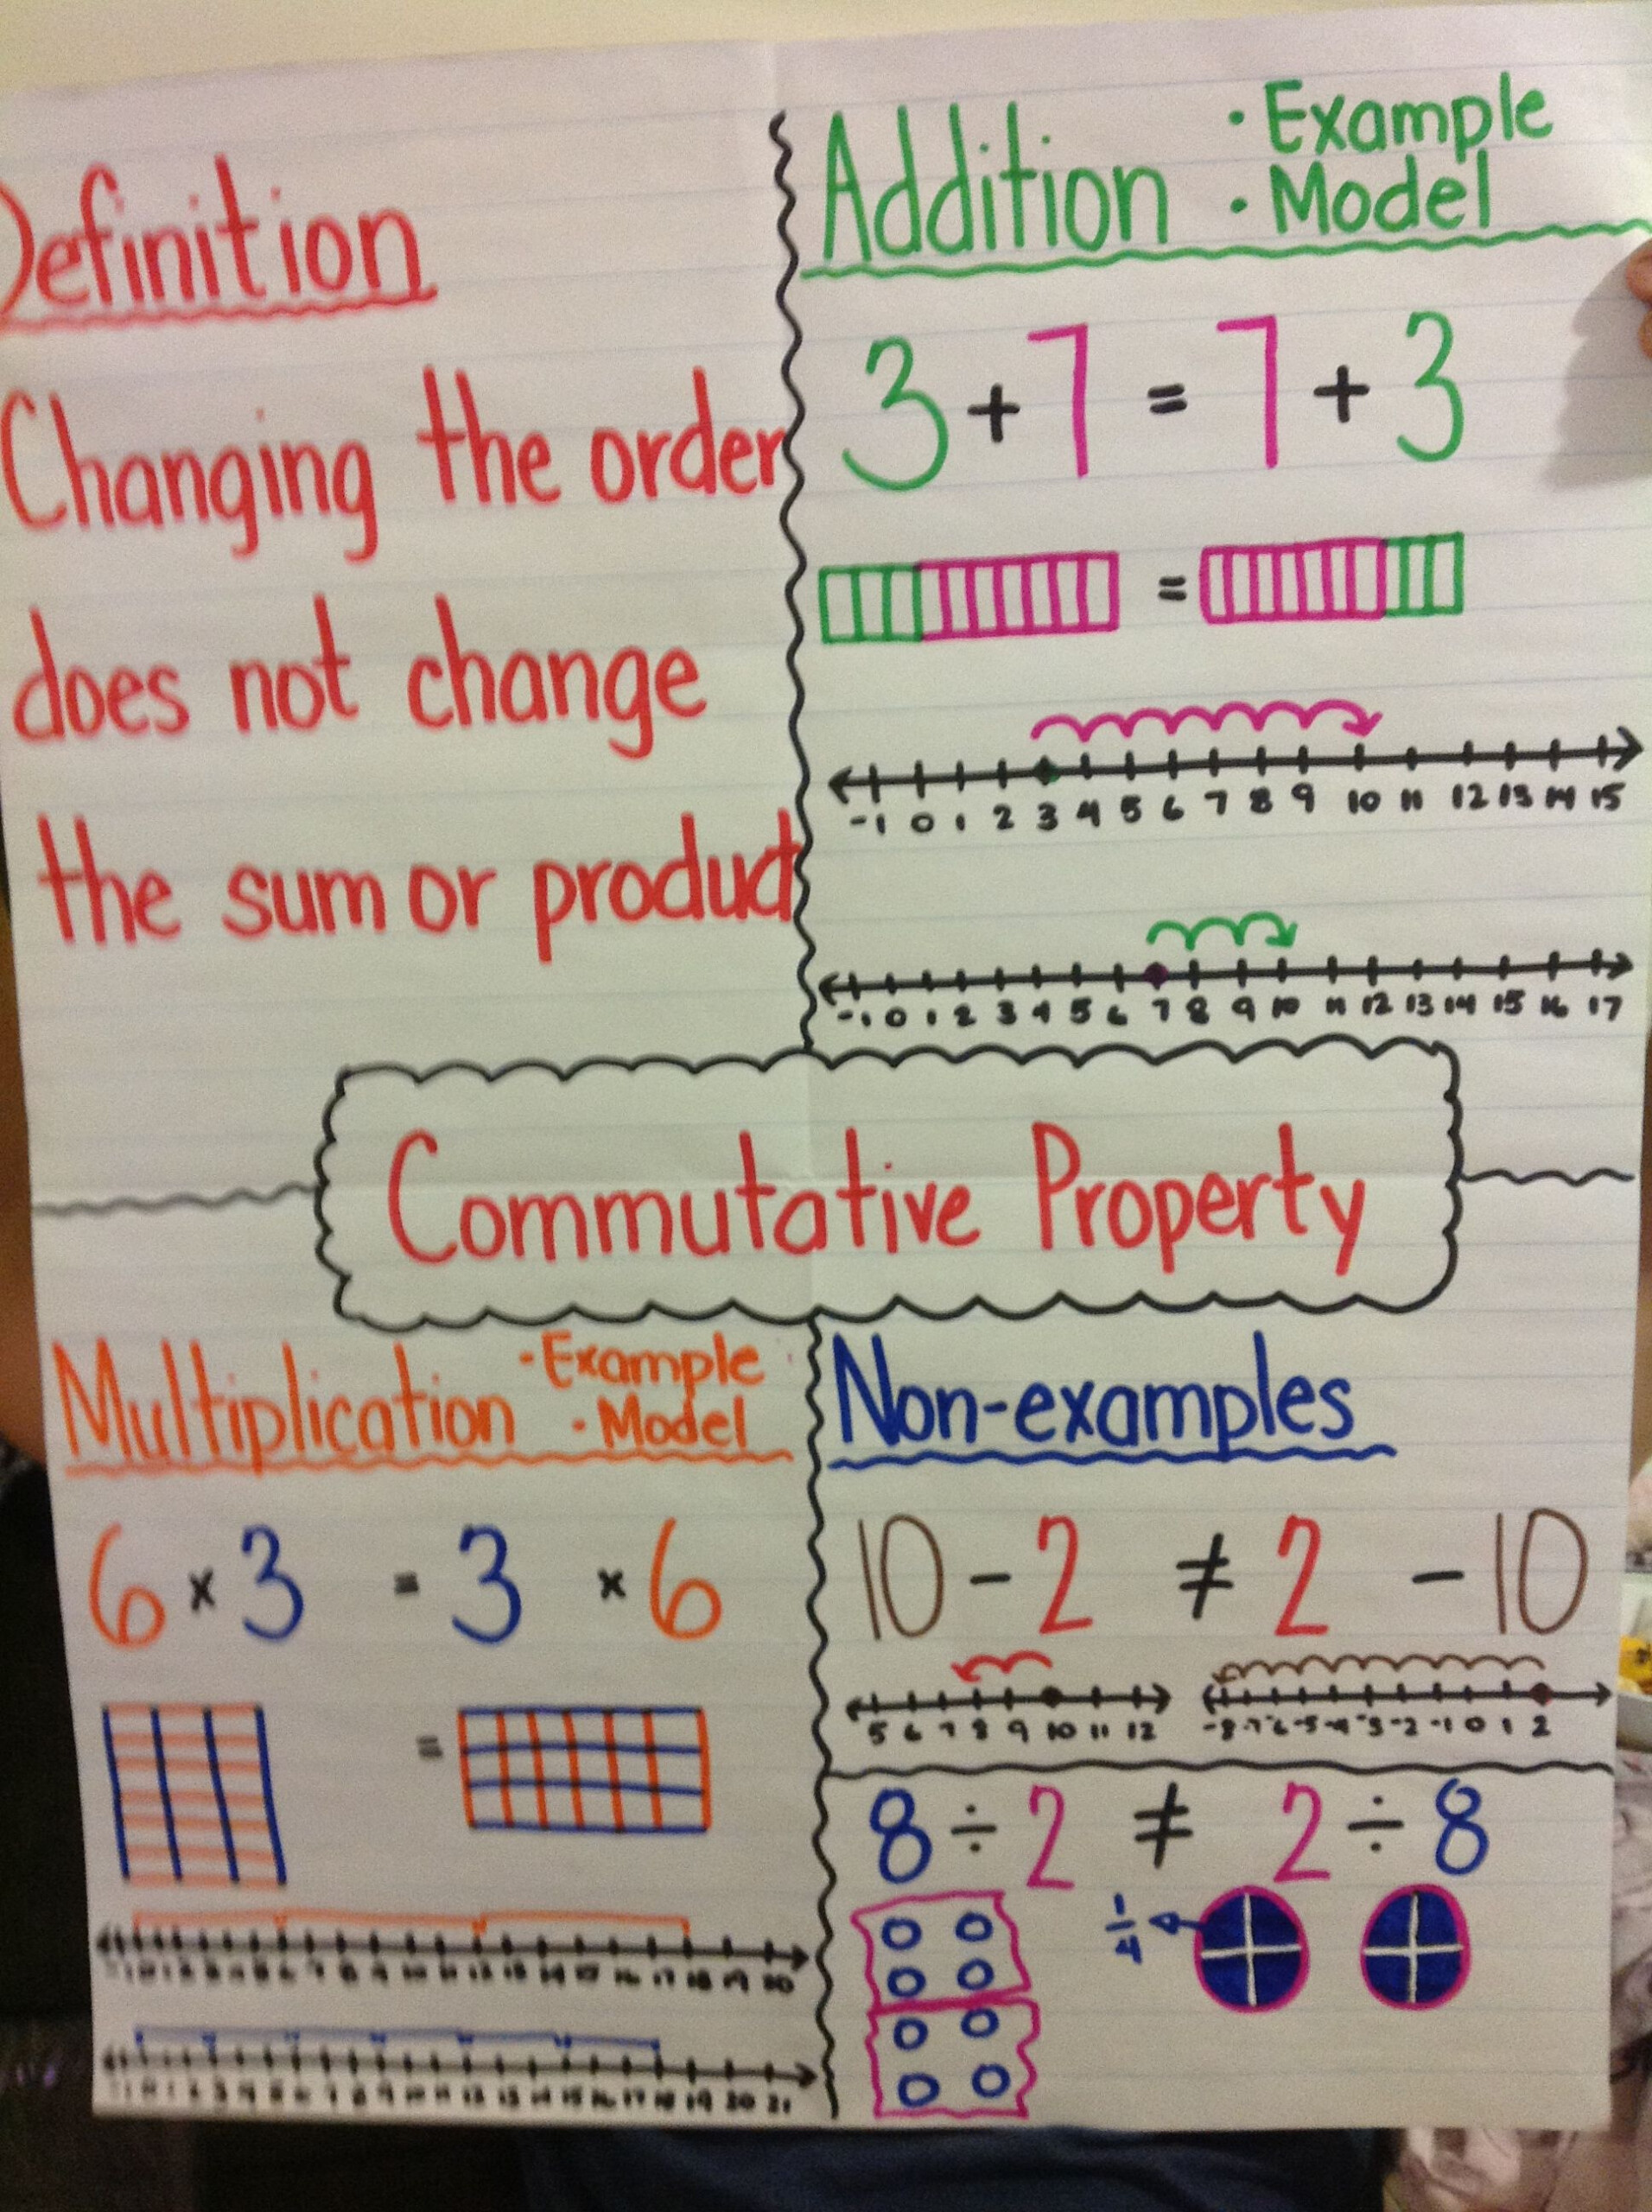 Definition
Changing the order
does not change
the sum or product
Addition
· Example
· Model
3 + 7 = 7 + 3
=
-1 0 1 2 3 4 5 6 7 8 9 10 11 12 13 14 15
-1 0 1 2 3 4 5 6 7 8 9 10 11 12 13 14 15 16 17
Commutative Property
Multiplication
· Example
· Model
6 x 3 = 3 x 6
=
-1 0 1 2 3 4 5 6 7 8 9 10 11 12 13 14 15 16 17 18 19 20
-1 0 1 2 3 4 5 6 7 8 9 10 11 12 13 14 15 16 17 18 19 20 21
Non-examples
10 - 2 ≠ 2 - 10
5 6 7 8 9 10 11 12
-8 -7 -6 -5 -4 -3 -2 -1 0 1 2
8 ÷ 2 ≠ 2 ÷ 8
1/4